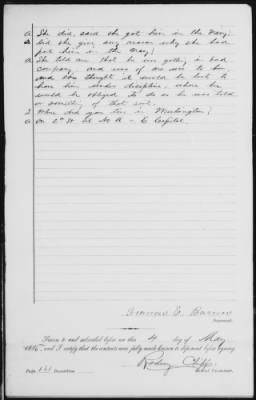 A. She did, said she got him in the Navy;
Q. Did she give any reason why she had
put him in the Navy;
A. She told me that he was getting in bad
company, and was of no use to her,
and she thought it would be best to
have him under discipline, where he
would be obliged to do as he was told
or something of that sort.
Q. Where did you live in Washington;
A. on 2" St
Deponent.
Sworn to and subscribed before me this 4 day of May
and I certify that the contents were fully made known to deponent before signing.
Page Deposition